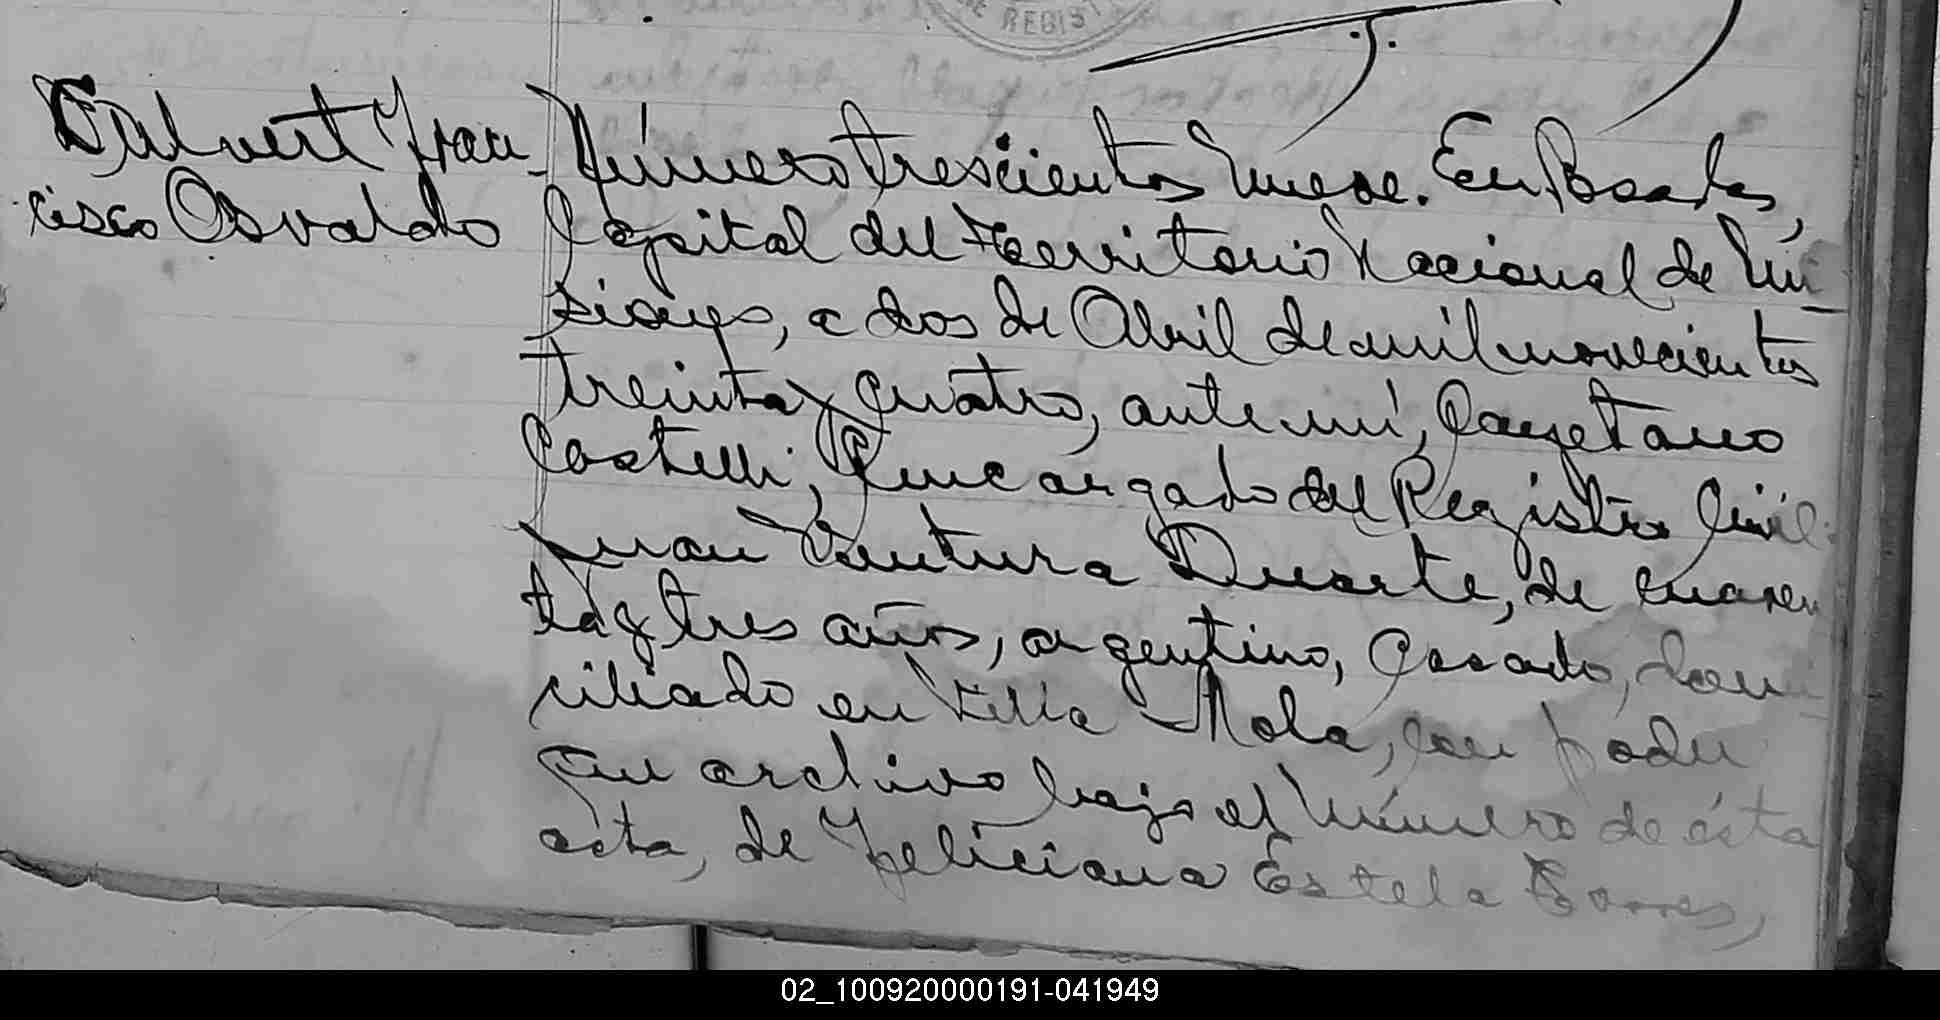 DE REGIST
Galvert Fran
cisco Osvaldo
Número trescientos nueve. En Posadas,
Capital del Territorio Nacional de Mi
siones, a dos de Abril de mil novecientos
treinta y cuatro, ante mí, Cayetano
Castelli, Encargado del Registro Civil.
Juan Ventura Duarte, de cuaren
ta y tres años, argentino, casado, domi
ciliado en Villa Mola, con poder
en archivo bajo el número de ésta
acta, de Feliciana Estela Torres,
02_100920000191-041949